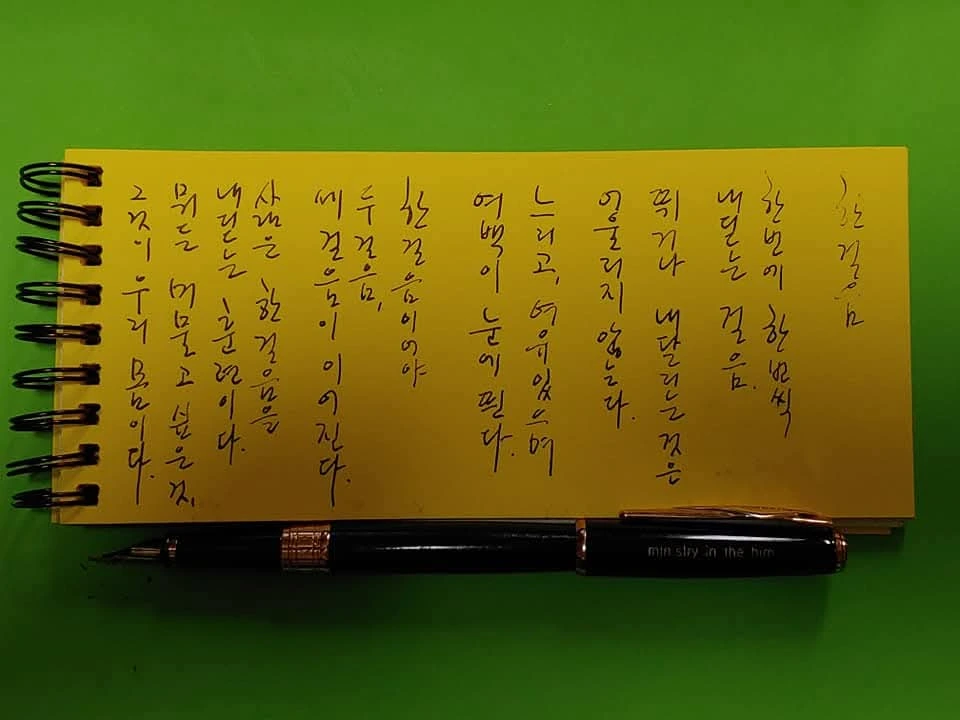 한걸음
한번에 한번씩
내딛는 걸음.
뛰거나 내달리는 것은
어울리지 않는다.
느리고, 여유있으며
여백이 눈에 띈다.
한걸음이어야
두걸음,
세걸음이 이어진다.
삶은 한걸음을
내딛는 훈련이다.
뭐든 머물고 싶은 것,
그것이 우리 몸이다.
ministry in the him